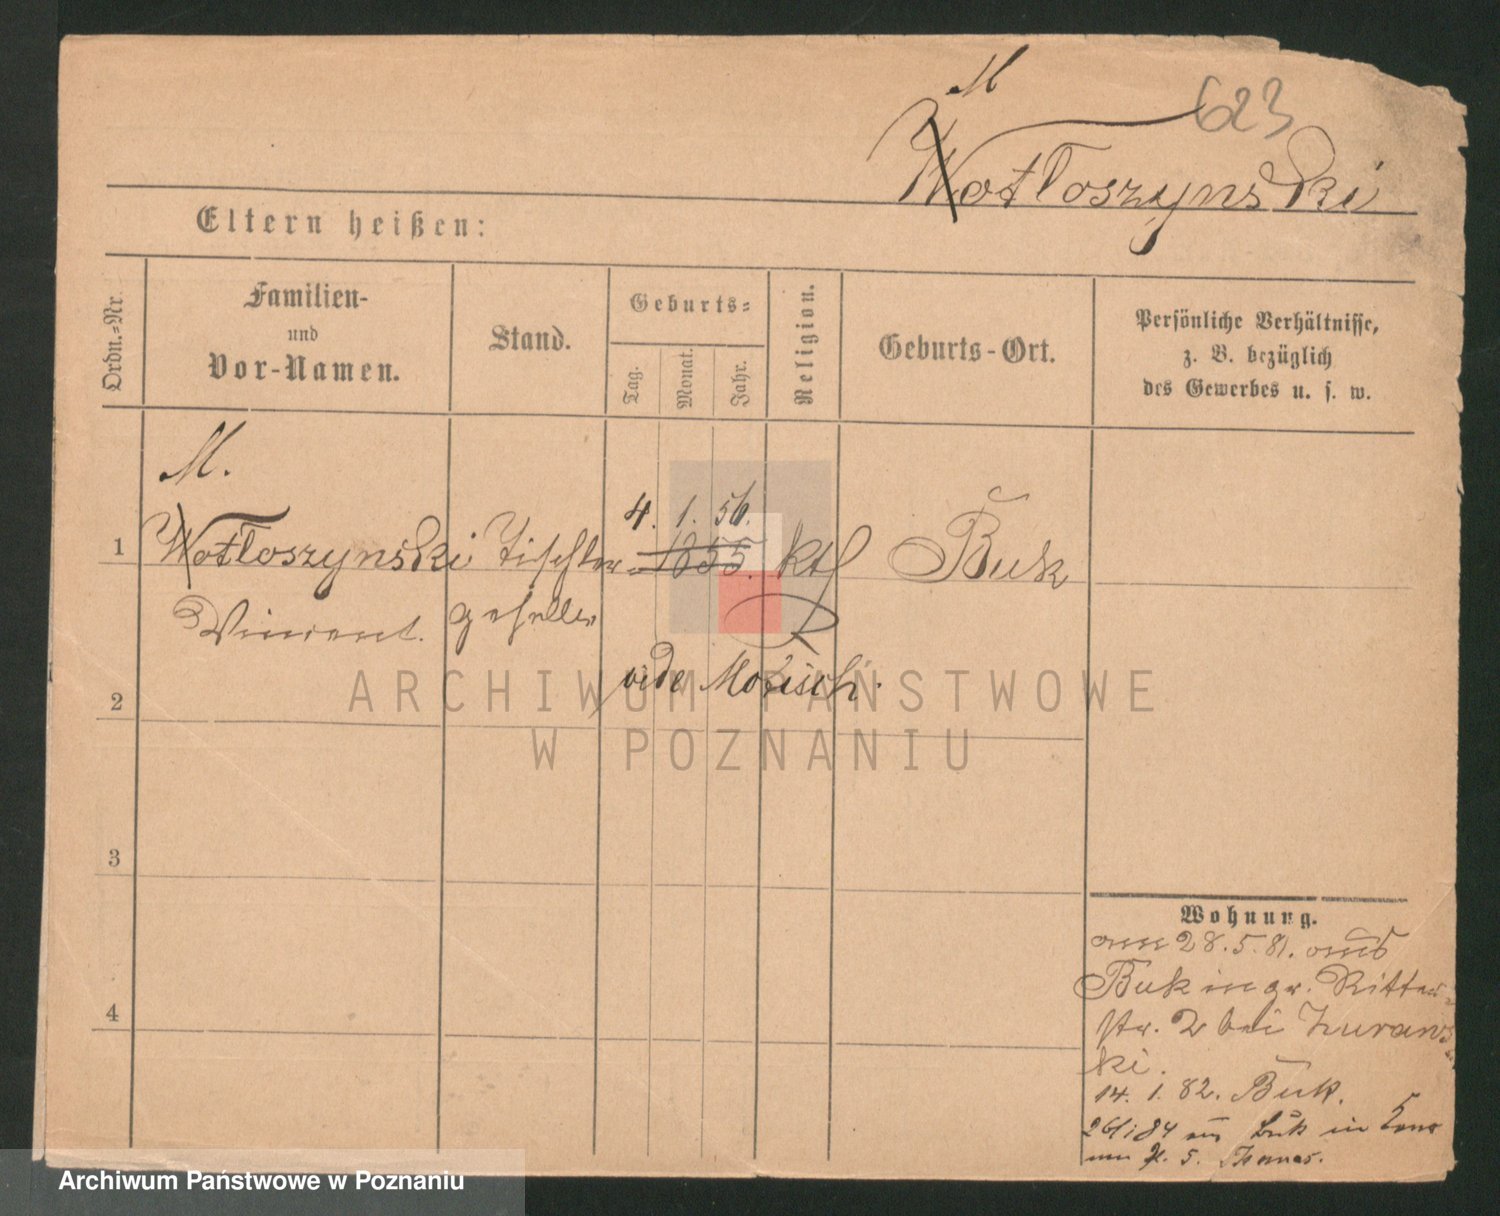 M
623
Wotloszynski
Eltern heißen:
Ordn.-Nr.
Familien-
und
Vor-Namen.
Stand.
Geburts-
Tag.
Monat.
Jahr.
Religion.
Geburts-Ort.
Persönliche Verhältnisse,
z. B. bezüglich
des Gewerbes u. s. w.
M.
4. 1. 56.
1 Wotloszynski Tischler- 1855. ktl Buk
Vincent. geselle
vide Motisch.
2
3
4
Wohnung.
am 28.5.81. aus
Buk in gr. Ritter-
str. 2 bei Zuraws-
ki.
14. 1. 82. Buk.
26/1 84 aus Buk in
5. Thomas.
ARCHIWUM PAŃSTWOWE
W POZNANIU
Archiwum Państwowe w Poznaniu